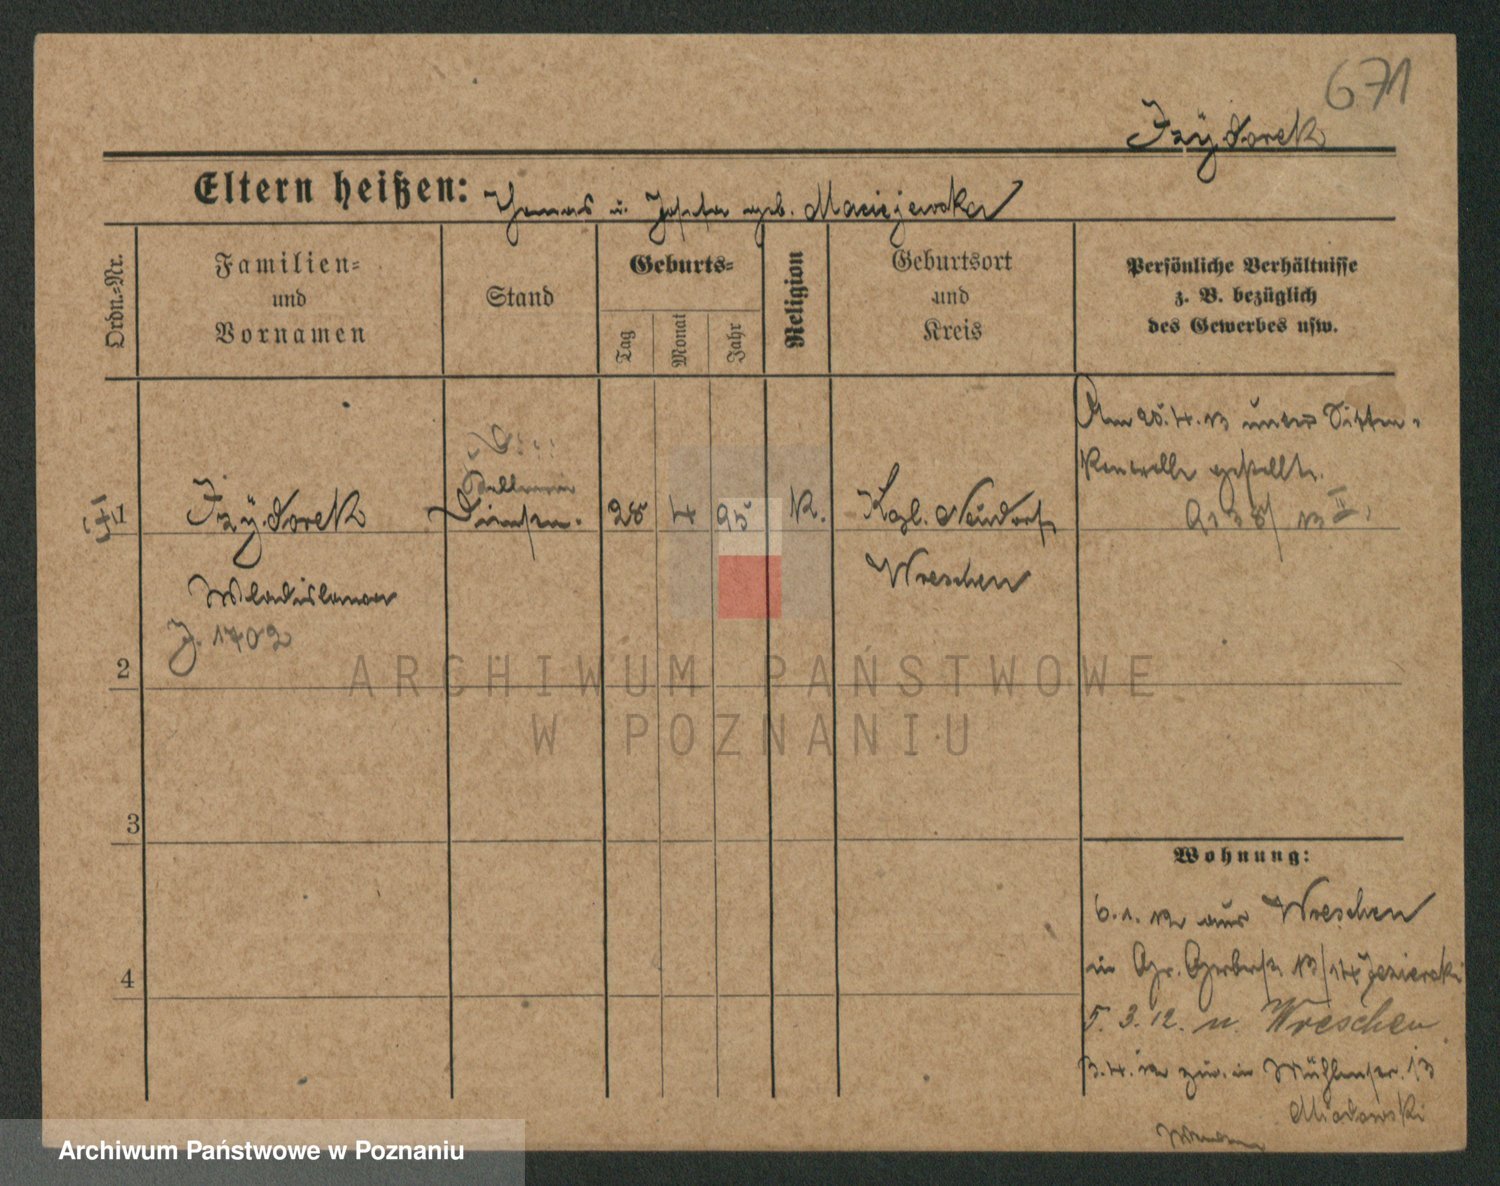 671
Izydorek
Eltern heißen: Thomas u. Josefa geb. Maciejewska
Ordn.-Nr.
Familien-
und
Vornamen
Stand
Geburts-
Tag
Monat
Jahr
Religion
Geburtsort
und
Kreis
Persönliche Verhältnisse
z. B. bezüglich
des Gewerbes usw.
Am 25.4.13 unter Sitten-
Kontrolle gestellt.
1 Izydorek 28 4 95 K. Kgl. Neudorf
Wreschen
Wladislawa
J. 1702
2
3
4
Wohnung:
6.1.12 aus Wreschen
in Gr. Gerberstr. 13/14 Jezierski
5.3.12. n. Wreschen
3.4.12 zur. in Mühlenstr. 13
ARCHIWUM PAŃSTWOWE
W POZNANIU
Archiwum Państwowe w Poznaniu